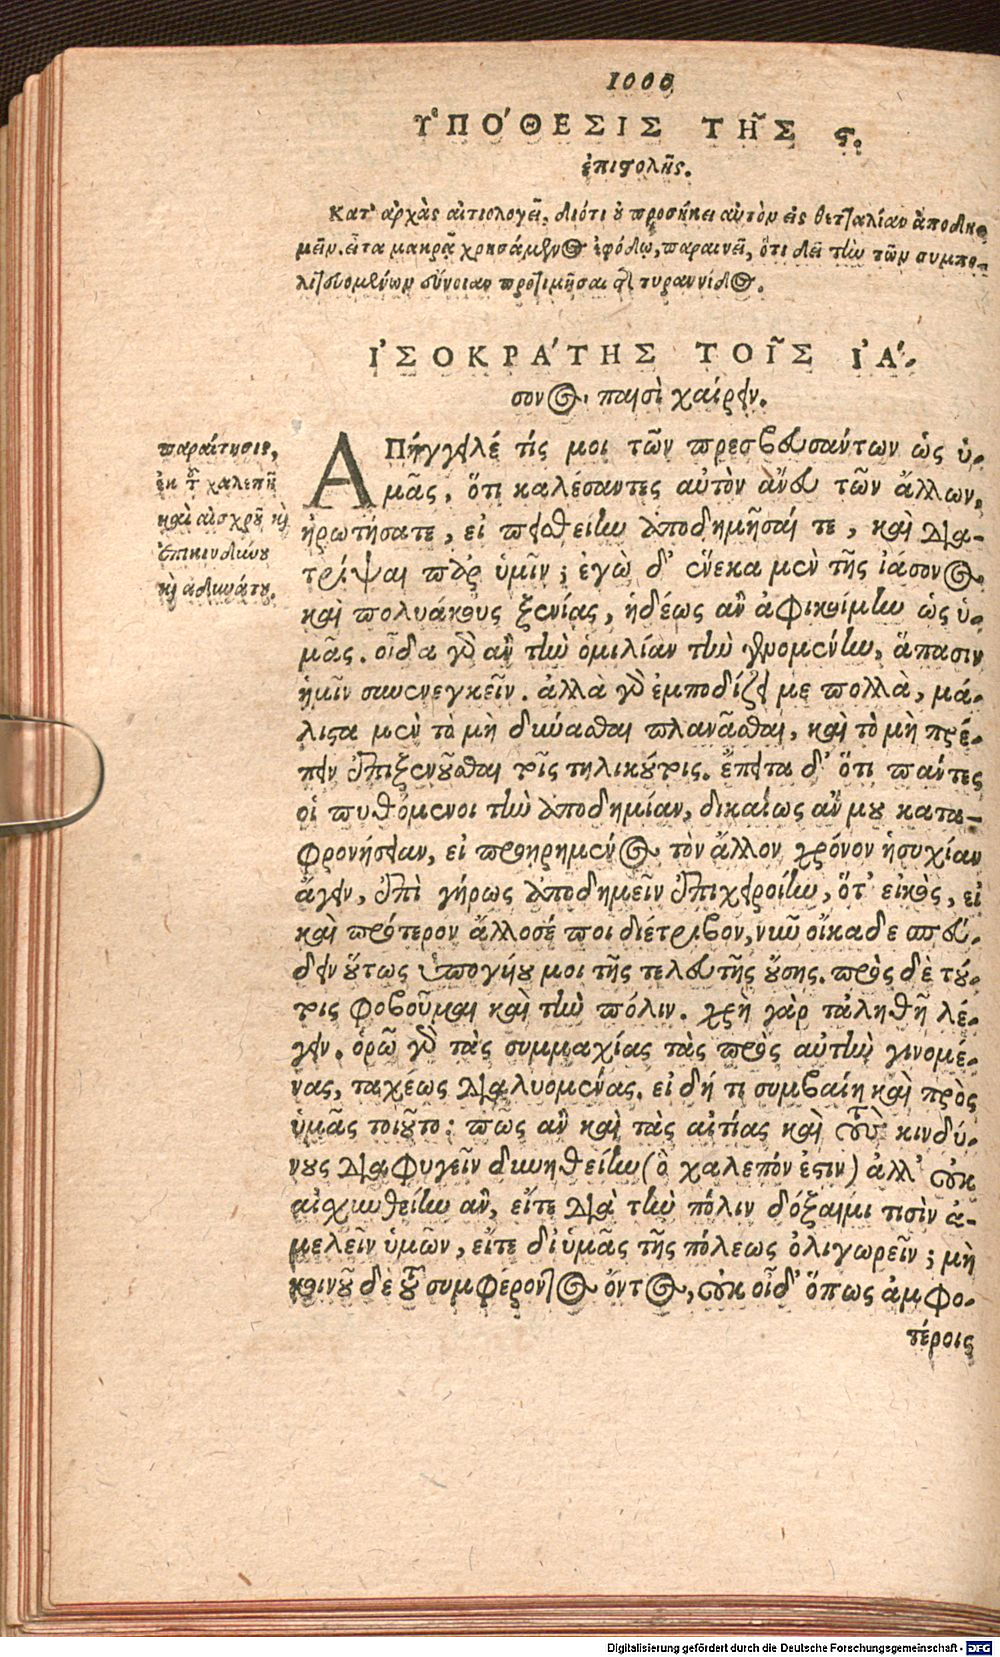 1000
ὙΠΟΘΕΣΙΣ ΤΗ͂Σ ϛ.
ἐπιστολῆς.
Κατ' ἀρχὰς αἰτιολογεῖ, διότι οὐ προσήκει αὐτὸν εἰς θετταλίαν ἀποδη-
μεῖν. εἶτα μακρᾷ χρησάμενος ἐφόδῳ, παραινεῖ, ὅτι δεῖ τὴν τῶν συμπο-
λιτευομένων εὔνοιαν προτιμῆσαι τῆς τυραννίδος.
ἸΣΟΚΡΆΤΗΣ ΤΟΙ͂Σ ἸΆ-
σονος παισὶ χαίρειν.
παραίτησις,
ἐκ τοῦ χαλεποῦ
καὶ αἰσχροῦ καὶ
ἐπικινδύνου
καὶ ἀδυνάτου.
ΑΠήγγειλέ τίς μοι τῶν πρεσβευσάντων ὡς ὑ-
μᾶς, ὅτι καλέσαντες αὐτὸν ἄνευ τῶν ἄλλων,
ἠρωτήσατε, εἰ πεισθείην ἀποδημῆσαί τε, καὶ δια-
τρίψαι παρ' ὑμῖν; ἐγὼ δ' ἕνεκα μὲν τῆς ἰάσονος
καὶ πολυάκους ξενίας, ἡδέως ἂν ἀφικοίμην ὡς ὑ-
μᾶς. οἶδα γὰρ ἂν τὴν ὁμιλίαν τὴν γενομένην, ἅπασιν
ἡμῖν συνενεγκεῖν. ἀλλὰ γὰρ ἐμποδίζει με πολλὰ, μά-
λιστα μὲν τὸ μὴ δύνασθαι πλανᾶσθαι, καὶ τὸ μὴ πρέ-
πειν ἐπιξενοῦσθαι τοῖς τηλικούτοις. ἔπειτα δ' ὅτι πάντες
οἱ πυθόμενοι τὴν ἀποδημίαν, δικαίως ἄν μου κατα-
φρονήσειαν, εἰ προῃρημένος τὸν ἄλλον χρόνον ἡσυχίαν
ἄγειν, ἐπὶ γήρως ἀποδημεῖν ἐπιχειροίην, ὅτ' εἰκὸς, εἰ
καὶ πρότερον ἄλλοσέ ποι διέτριβον, νῦν οἴκαδε σπεύ-
δειν οὕτως ὑπογύου μοι τῆς τελευτῆς οὔσης. πρὸς δὲ τού-
τοις φοβοῦμαι καὶ τὴν πόλιν. χρὴ γὰρ τἀληθῆ λέ-
γειν. ὁρῶ γὰρ τὰς συμμαχίας τὰς πρὸς αὐτὴν γινομέ-
νας, ταχέως διαλυομένας. εἰ δή τι συμβαίη καὶ πρὸς
ὑμᾶς τοιοῦτο: πῶς ἂν καὶ τὰς αἰτίας καὶ τοὺς κινδύ-
νους διαφυγεῖν δυνηθείην (ὃ χαλεπόν ἐστιν) ἀλλ' οὖν
αἰσχυνθείην ἂν, εἴτε διὰ τὴν πόλιν δόξαιμι τισὶν ἀ-
μελεῖν ὑμῶν, εἴτε δι' ὑμᾶς τῆς πόλεως ὀλιγωρεῖν; μὴ
κοινοῦ δὲ τοῦ συμφέροντος ὄντος, οὐκ οἶδ' ὅπως ἀμφο-
τέροις
Digitalisierung gefördert durch die Deutsche Forschungsgemeinschaft - DFG